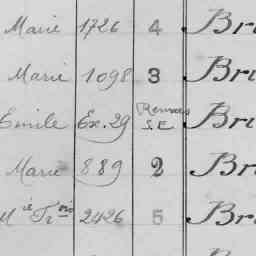 Marie 1726 4 Br
Marie 1098 3 Br
Emile Ex. 29 Renvoi S.E Br
Marie 889 2 Br
Mie Frois 2426 5 Br